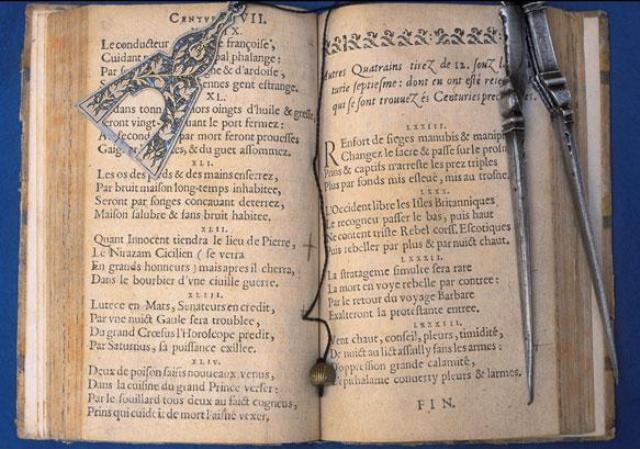 CENTVRIE VII.
IX.
Le conducteur françoise,
Cuidant phalange:
Par gne & d'ardoise,
ennes gent estrange.
XL.
dans tonn ors oingts d'huile & gresse,
eront vingt- uant le port fermez:
second par mort feront prouesses
Gaig & du guet assommez.
XLI.
Les os des ds & des mains enserrez,
Par bruit maison long-temps inhabitee,
Seront par songes concauant deterrez,
Maison salubre & sans bruit habitee.
XLII.
Quant Innocent tiendra le lieu de Pierre,
Le Nirazam Cicilien ( se verra
En grands honneurs) mais apres il cherra,
Dans le bourbier d'vne ciuille guerre.
XLIII.
Lutece en Mars, Senateurs en credit,
Par vne nuict Gaule sera troublee,
Du grand Crœsus l'Horoscope predit,
Par Saturnus, sa puissance exillee.
XLIV.
Deux de poison saisis nouueaux venus,
Dans la cuisine du grand Prince verser:
Par le souillard tous deux au faict cogneus,
Prins qui cuide de mort l'aisné vexer.
Autres Quatrains tirez de 12. souz l
turie septiesme: dont en ont esté rete
qui se sont trouuez és Centuries prec
LXXIII.
REnfort de sieges manubis & manip
Changez le sacre & passe sur le prosn
Prins & captifs n'arreste les prez triples
Plus par fonds mis esleué, mis au trosne.
LXXX.
L'Occident libre les Isles Britanniques
Le recogneu passer le bas, puis haut
Ne content triste Rebel corss. Escotiques
Puis rebeller par plus & par nuict chaut.
LXXXII.
La stratageme simulte sera rare
La mort en voye rebelle par contree:
Par le retour du voyage Barbare
Exalteront la protestante entree.
LXXXIII.
Vent chaut, conseil, pleurs, timidité,
De nuict au lict assailly sans les armes:
D'oppression grande calamité,
L'epithalame conuerty pleurs & larmes.
FIN.